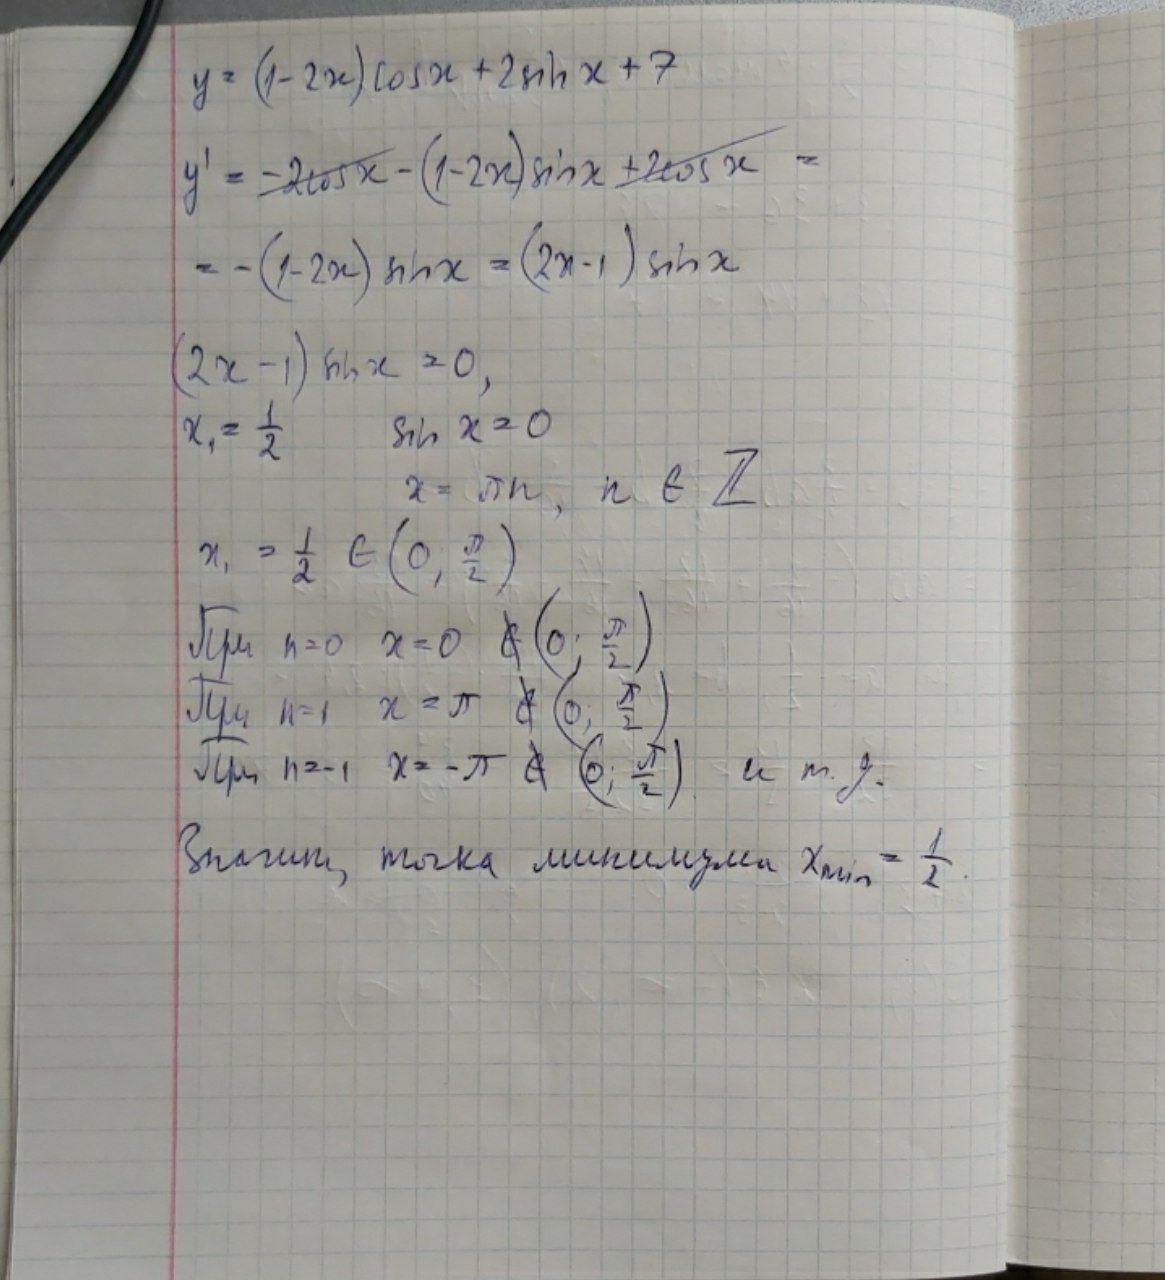 y = (1-2x)cosx + 2sin x + 7
y' = -2cosx - (1-2x)sinx + 2cosx =
= -(1-2x) sinx = (2x-1) sinx
(2x-1) sinx = 0,
x₁ = 1/2 sin x = 0
x = πn, n ∈ ℤ
x₁ = 1/2 ∈ (0; π/2)
При n=0 x=0 ∉ (0; π/2)
При n=1 x=π ∉ (0; π/2)
При n=-1 x=-π ∉ (0; π/2) и т.д.
Значит, точка минимума xmin = 1/2.